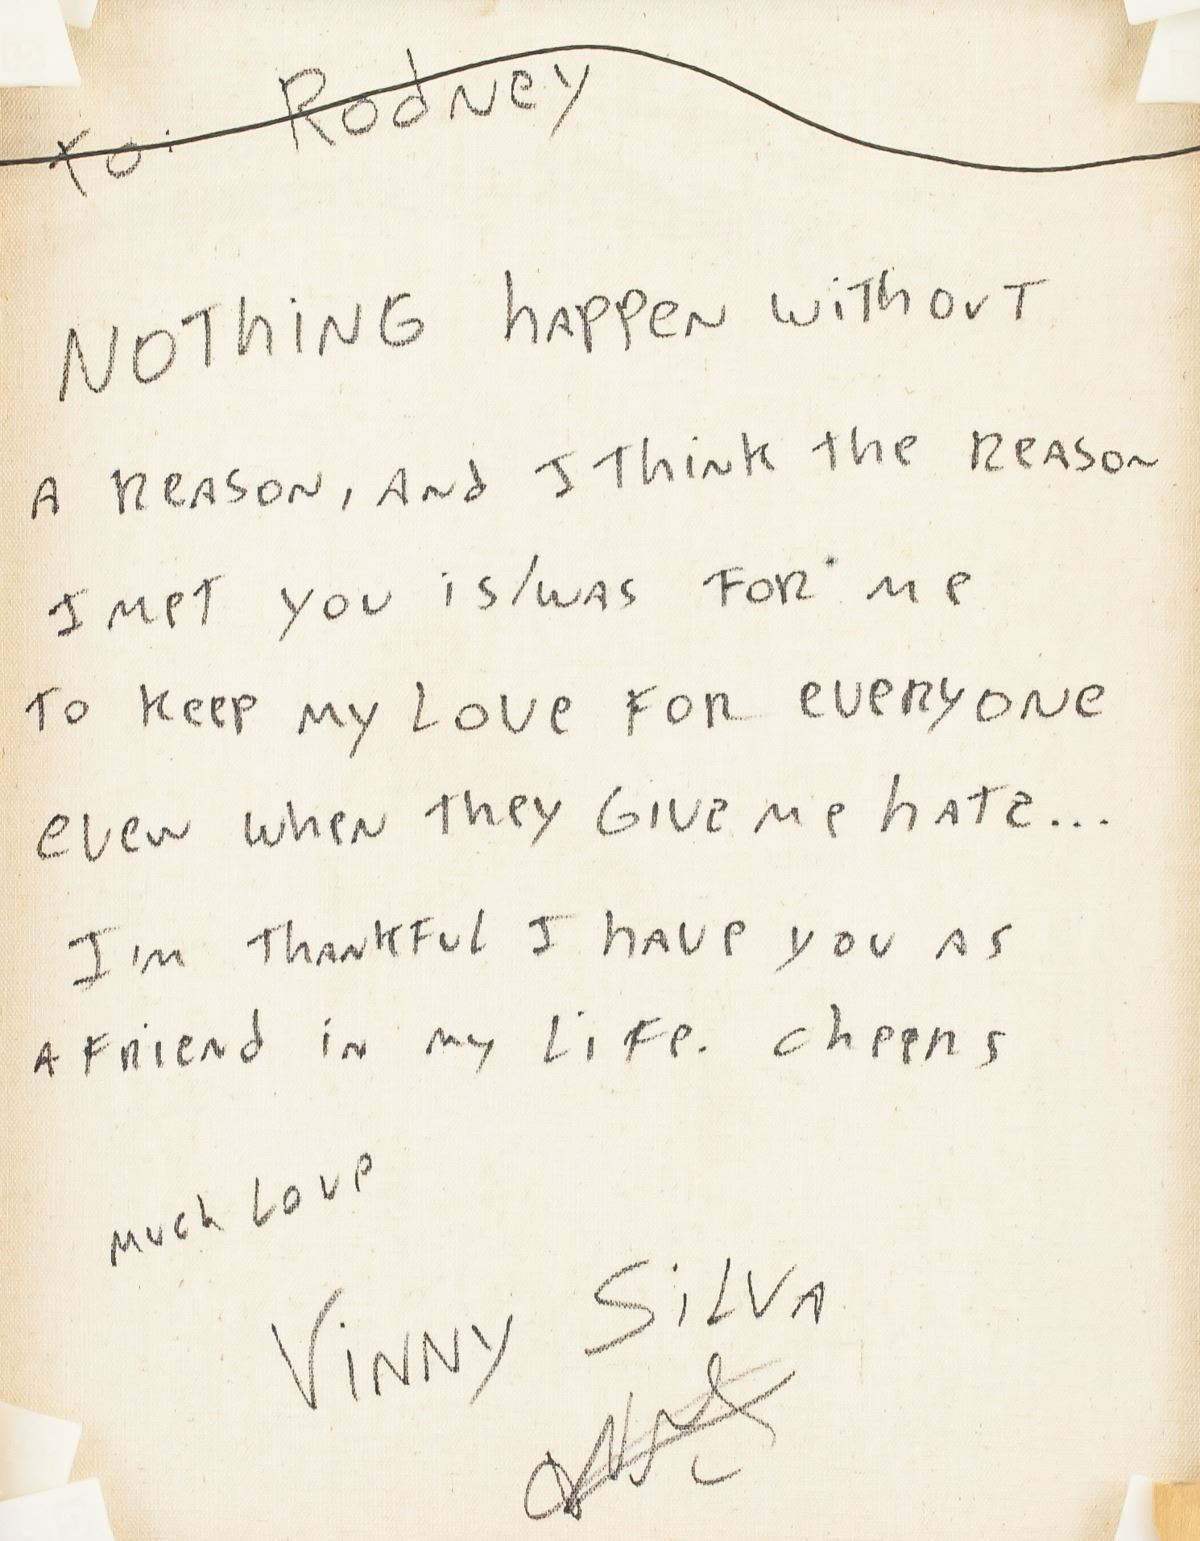 To: Rodney
NOThiNG hAppeN wiThouT
A ReASON, ANd I ThiNk the ReASON
I meT you is/wAS FOR me
To keep my Love FOR everyONe
even wheN they Give me hATe...
I'm ThANkFul I hAve you AS
A FRieNd iN my LiFe. cheeRs
Much Love
ViNNy SiLVA